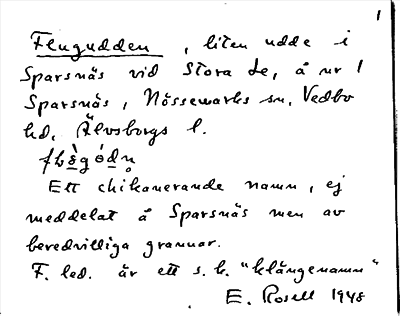 1
Flugudden, liten udde i
Sparsnäs vid Stora Le, å nr 1
Sparsnäs, Nössemarks sn, Vedbo
hd, Älvsborgs l.
Ett chikanerande namn, ej
meddelat å Sparsnäs men av
beredvilliga grannar.
F. led. är ett s. k. "klängenamn"
E. Rosell 1948